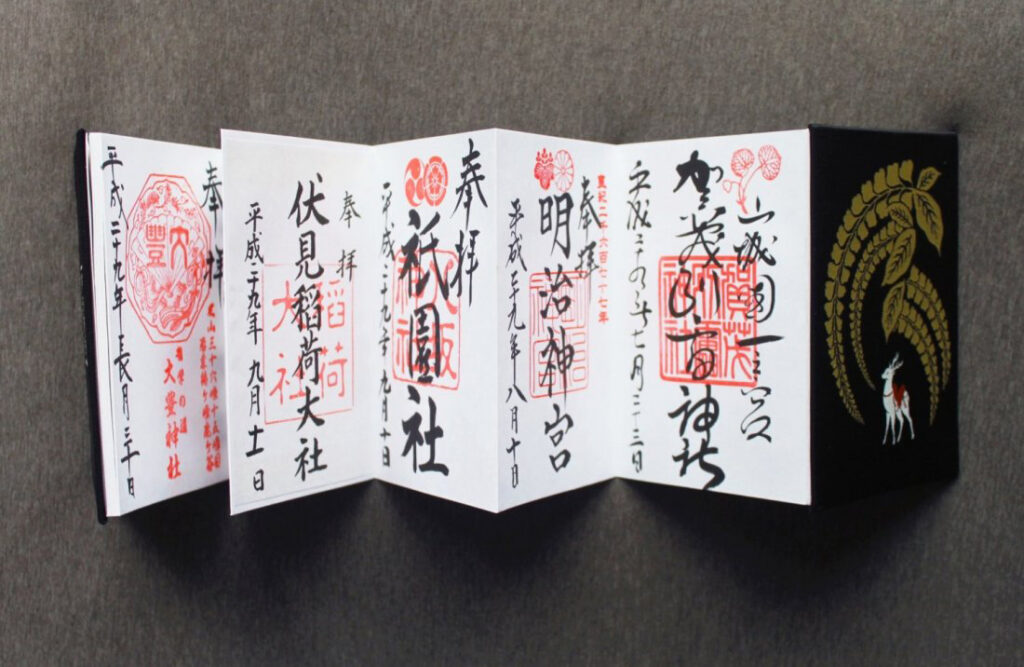 山城國一之宮
賀茂別雷神社
賀茂
別雷
神社
平成二十九年七月二十三日
皇紀二千六百七十七年
奉拝
明治神宮
平成二十九年八月十日
奉拝
祇園社
平成二十九年九月十日
奉拝
伏見稲荷大社
稲荷
大社
平成二九年 九月十一日
奉拝
大豊
東山三十六峰十五峰目
哲学の道
大豊神社
平成二十九年長月三十日